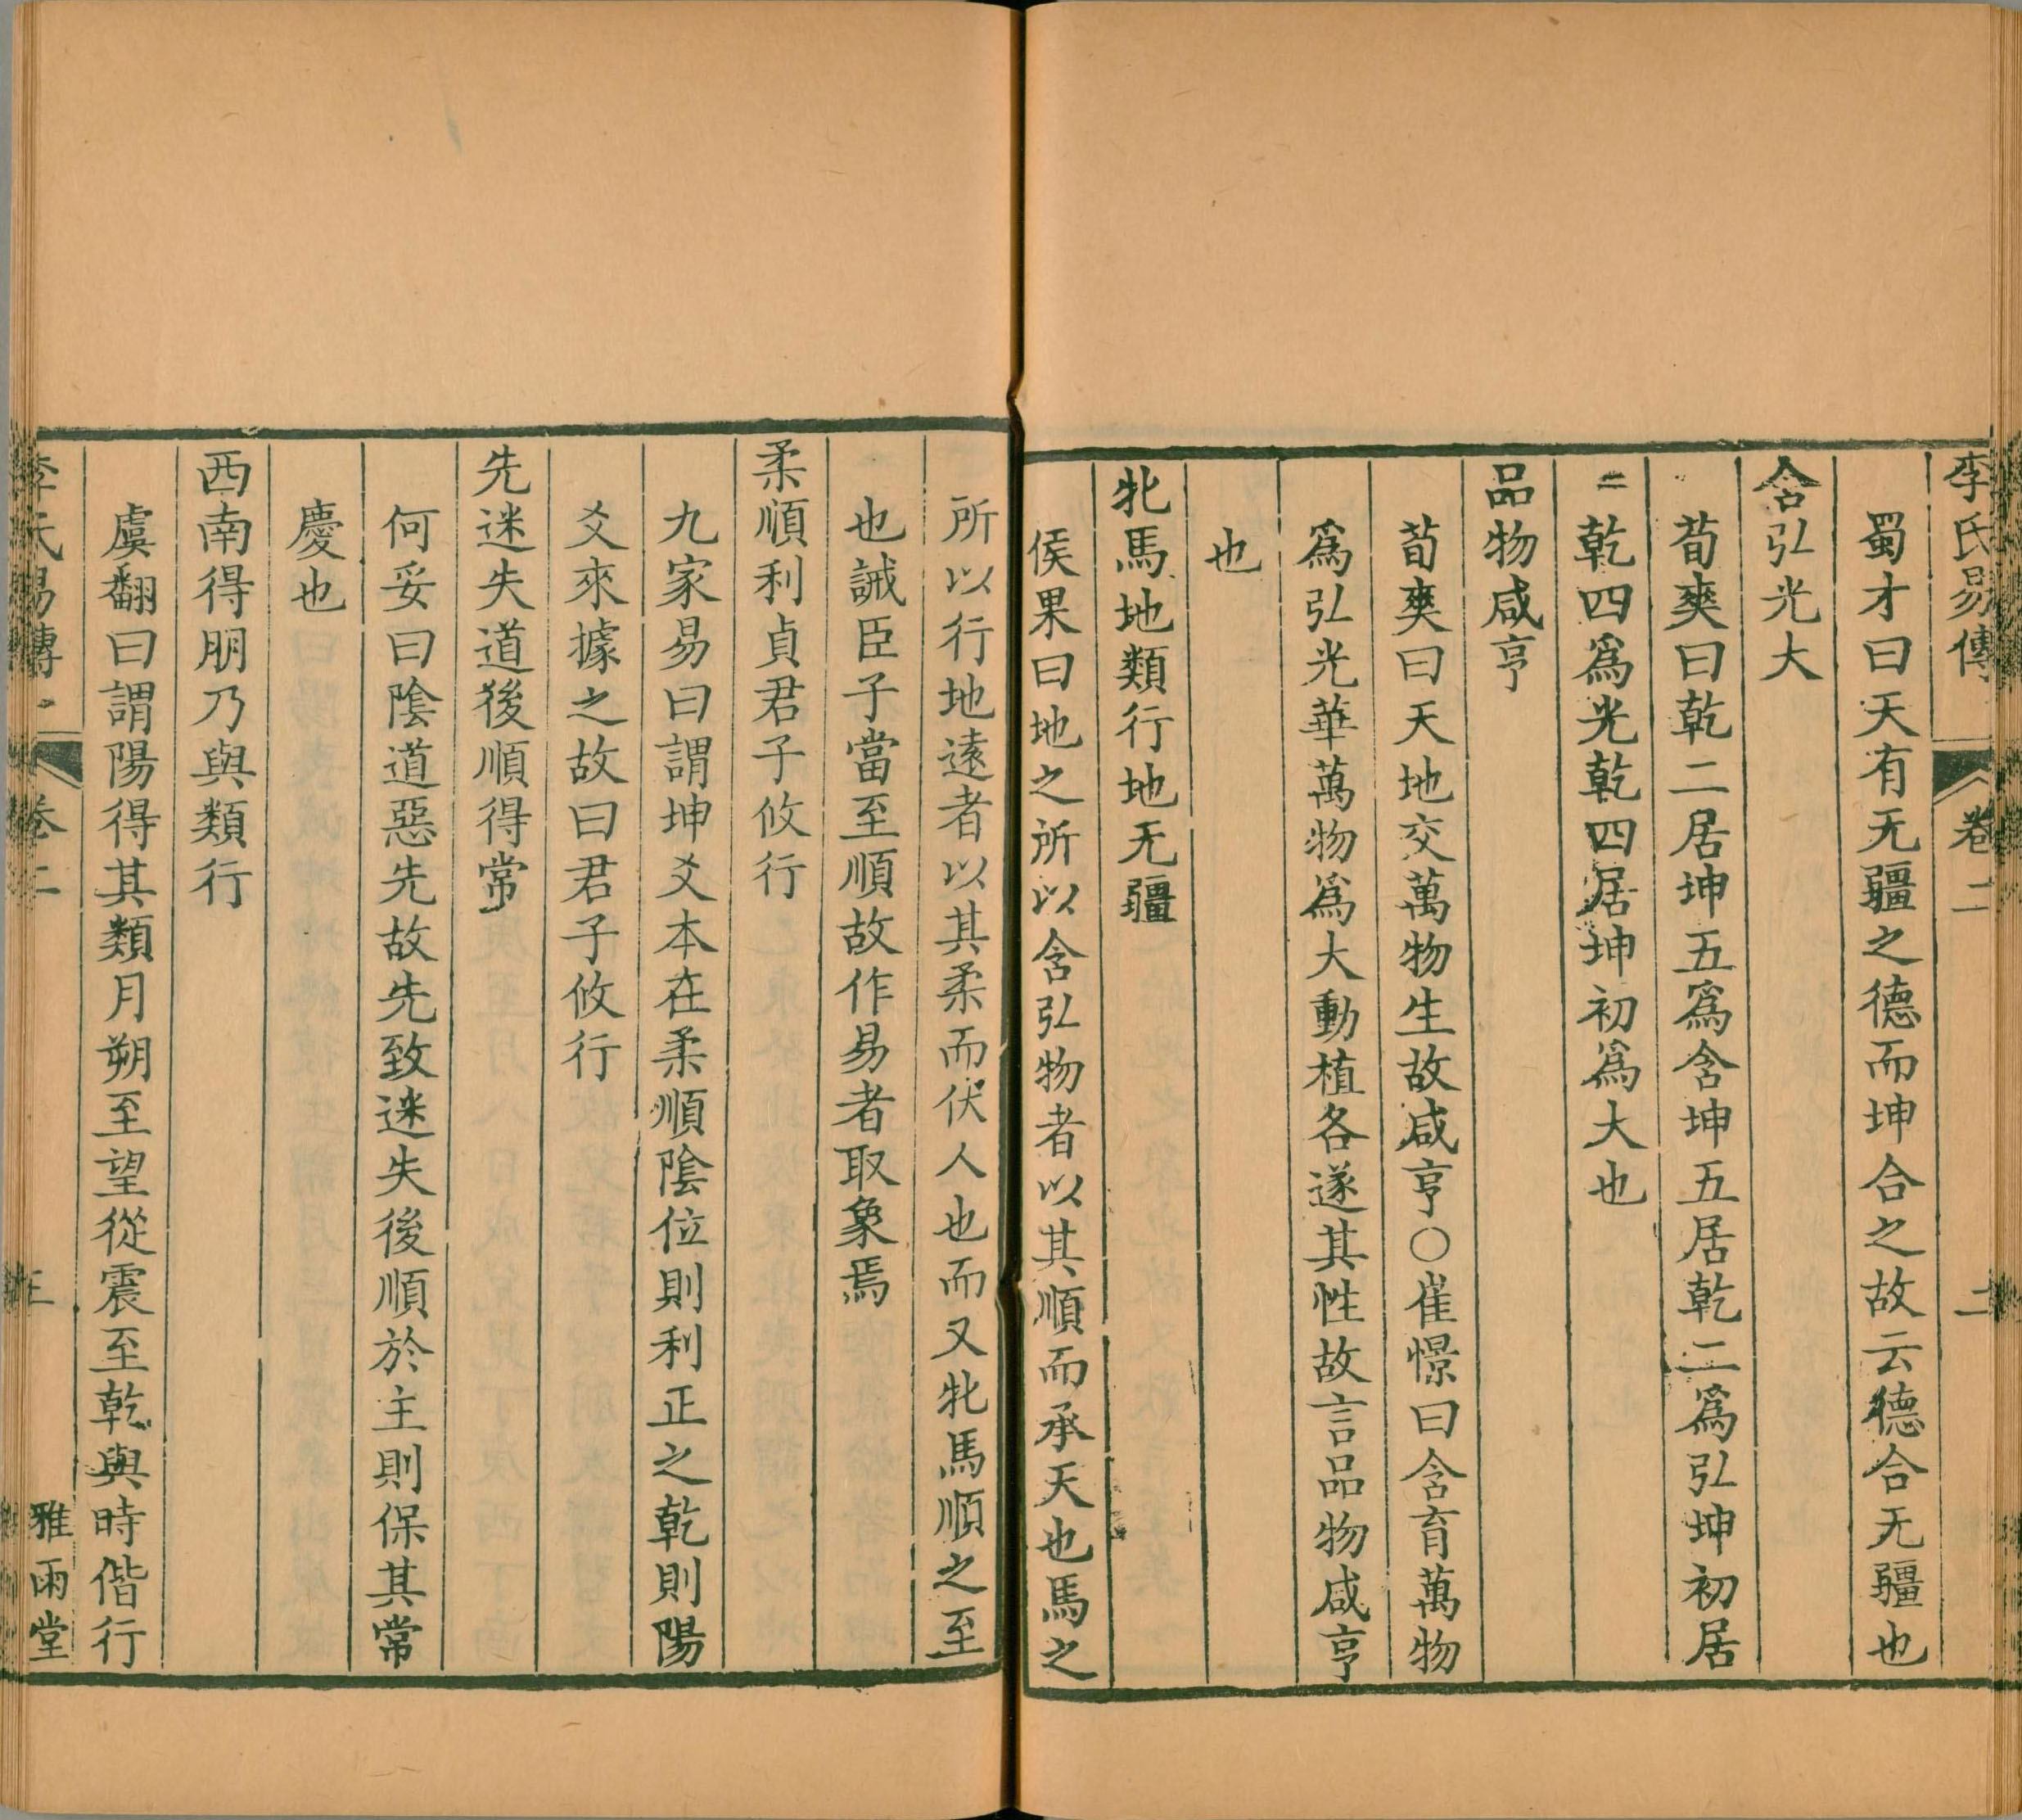 李氏易傳 卷二 二
蜀才曰天有无疆之德而坤合之故云德合无疆也
含弘光大
荀爽曰乾二居坤五爲含坤五居乾二爲弘坤初居
乾四爲光乾四居坤初爲大也
品物咸亨
荀爽曰天地交萬物生故咸亨○崔憬曰含育萬物
爲弘光華萬物爲大動植各遂其性故言品物咸亨
也
牝馬地類行地无疆
侯果曰地之所以含弘物者以其順而承天也馬之
所以行地遠者以其柔而伏人也而又牝馬順之至
也誡臣子當至順故作易者取象焉
柔順利貞君子攸行
九家易曰謂坤爻本在柔順陰位則利正之乾則陽
爻來據之故曰君子攸行
先迷失道後順得常
何妥曰陰道惡先故先致迷失後順於主則保其常
慶也
西南得朋乃與類行
虞翻曰謂陽得其類月朔至望從震至乾與時偕行
李氏易傳 卷二 三 雅雨堂